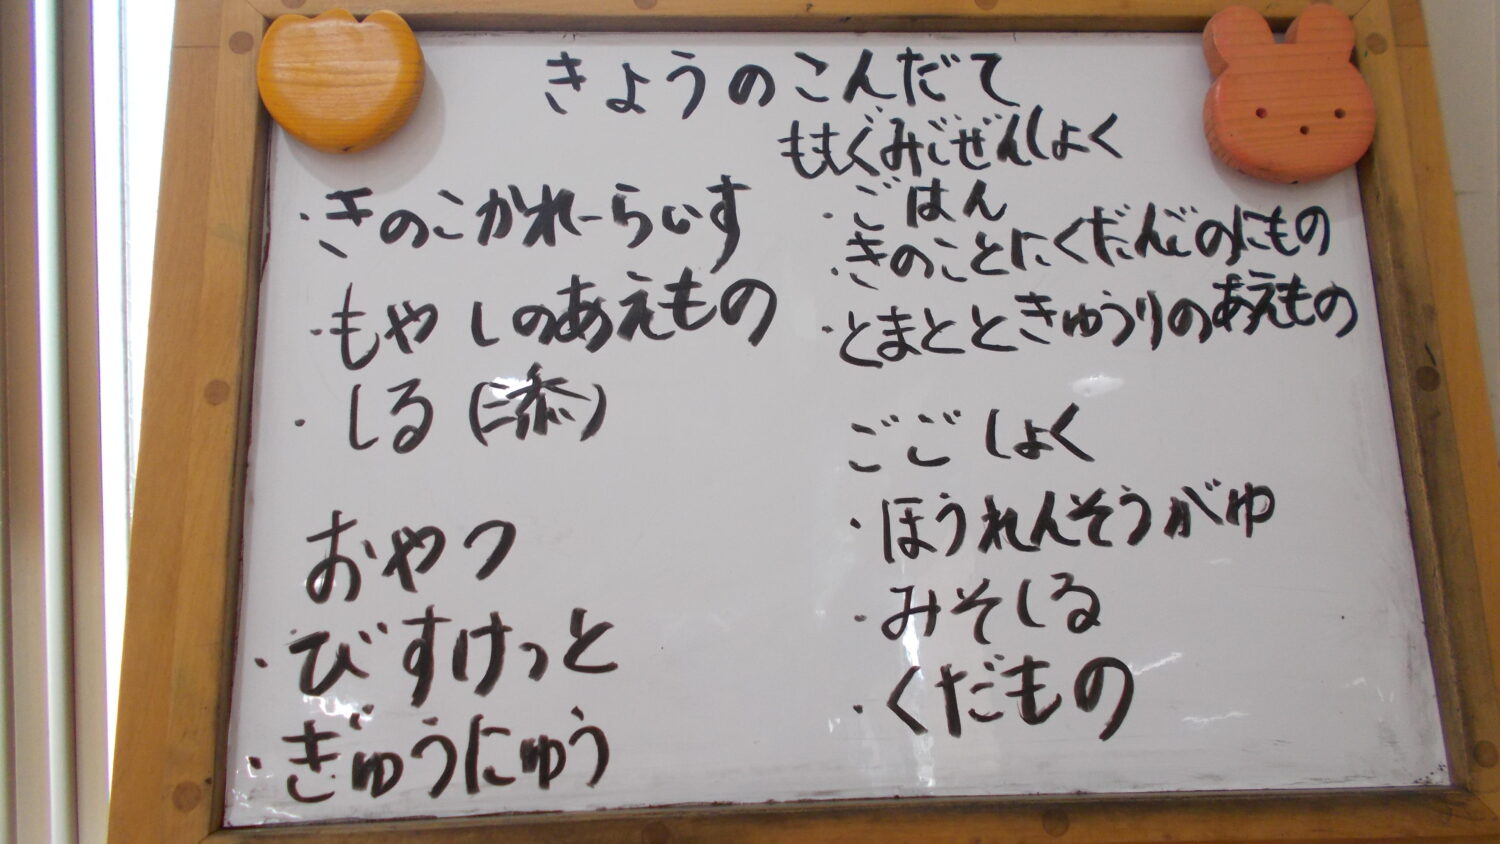 きょうのこんだて
・きのこかれーらいす
・もやしのあえもの
・しる(三添)
おやつ
・びすけっと
・ぎゅうにゅう
ももぐみごぜんしょく
・ごはん
・きのことにくだんごのにもの
・とまとときゅうりのあえもの
ごごしょく
・ほうれんそうがゆ
・みそしる
・くだもの